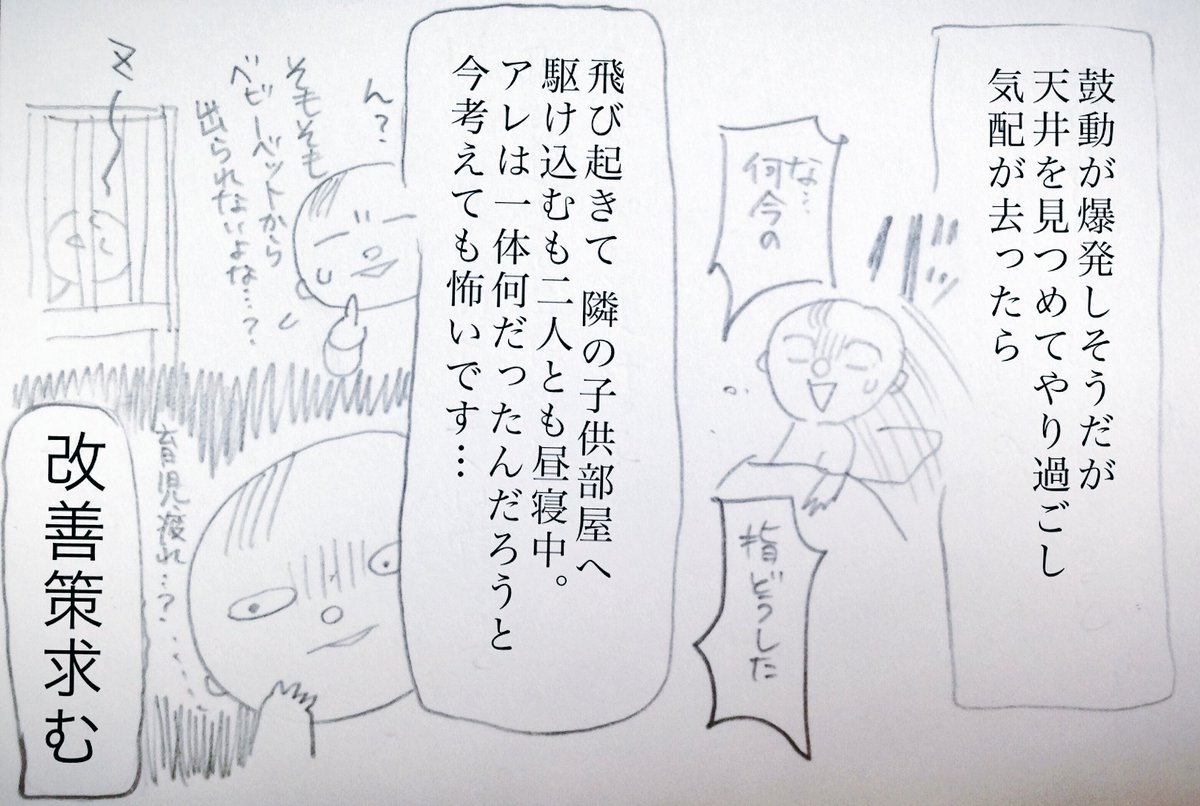 鼓動が爆発しそうだが
天井を見つめてやり過ごし
気配が去ったら
な…
何今の
指どうした
飛び起きて 隣の子供部屋へ
駆け込むも二人とも昼寝中。
アレは一体何だったんだろうと
今考えても怖いです…
ん?
そもそも
ベビーベットから
出られないよな…?
育児疲れ…?
改善策求む